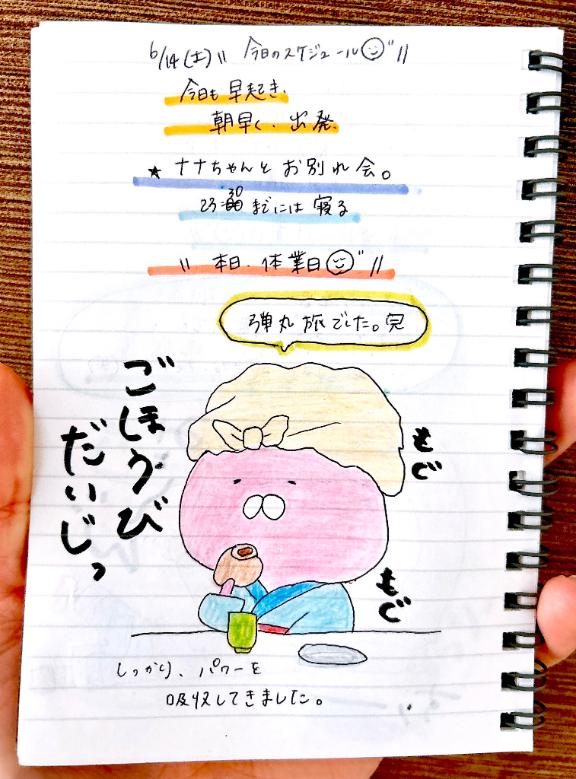 6/14(土)〃 今日のスケジュール 〃
今日も早起き、
朝早く、出発。
★ナナちゃんとお別れ会。
23:30までには寝る
〃 本日、休業日 〃
弾丸旅でした。完
ごほうび
だいじっ
もぐ
もぐ
しっかり、パワーを
吸収してきました。